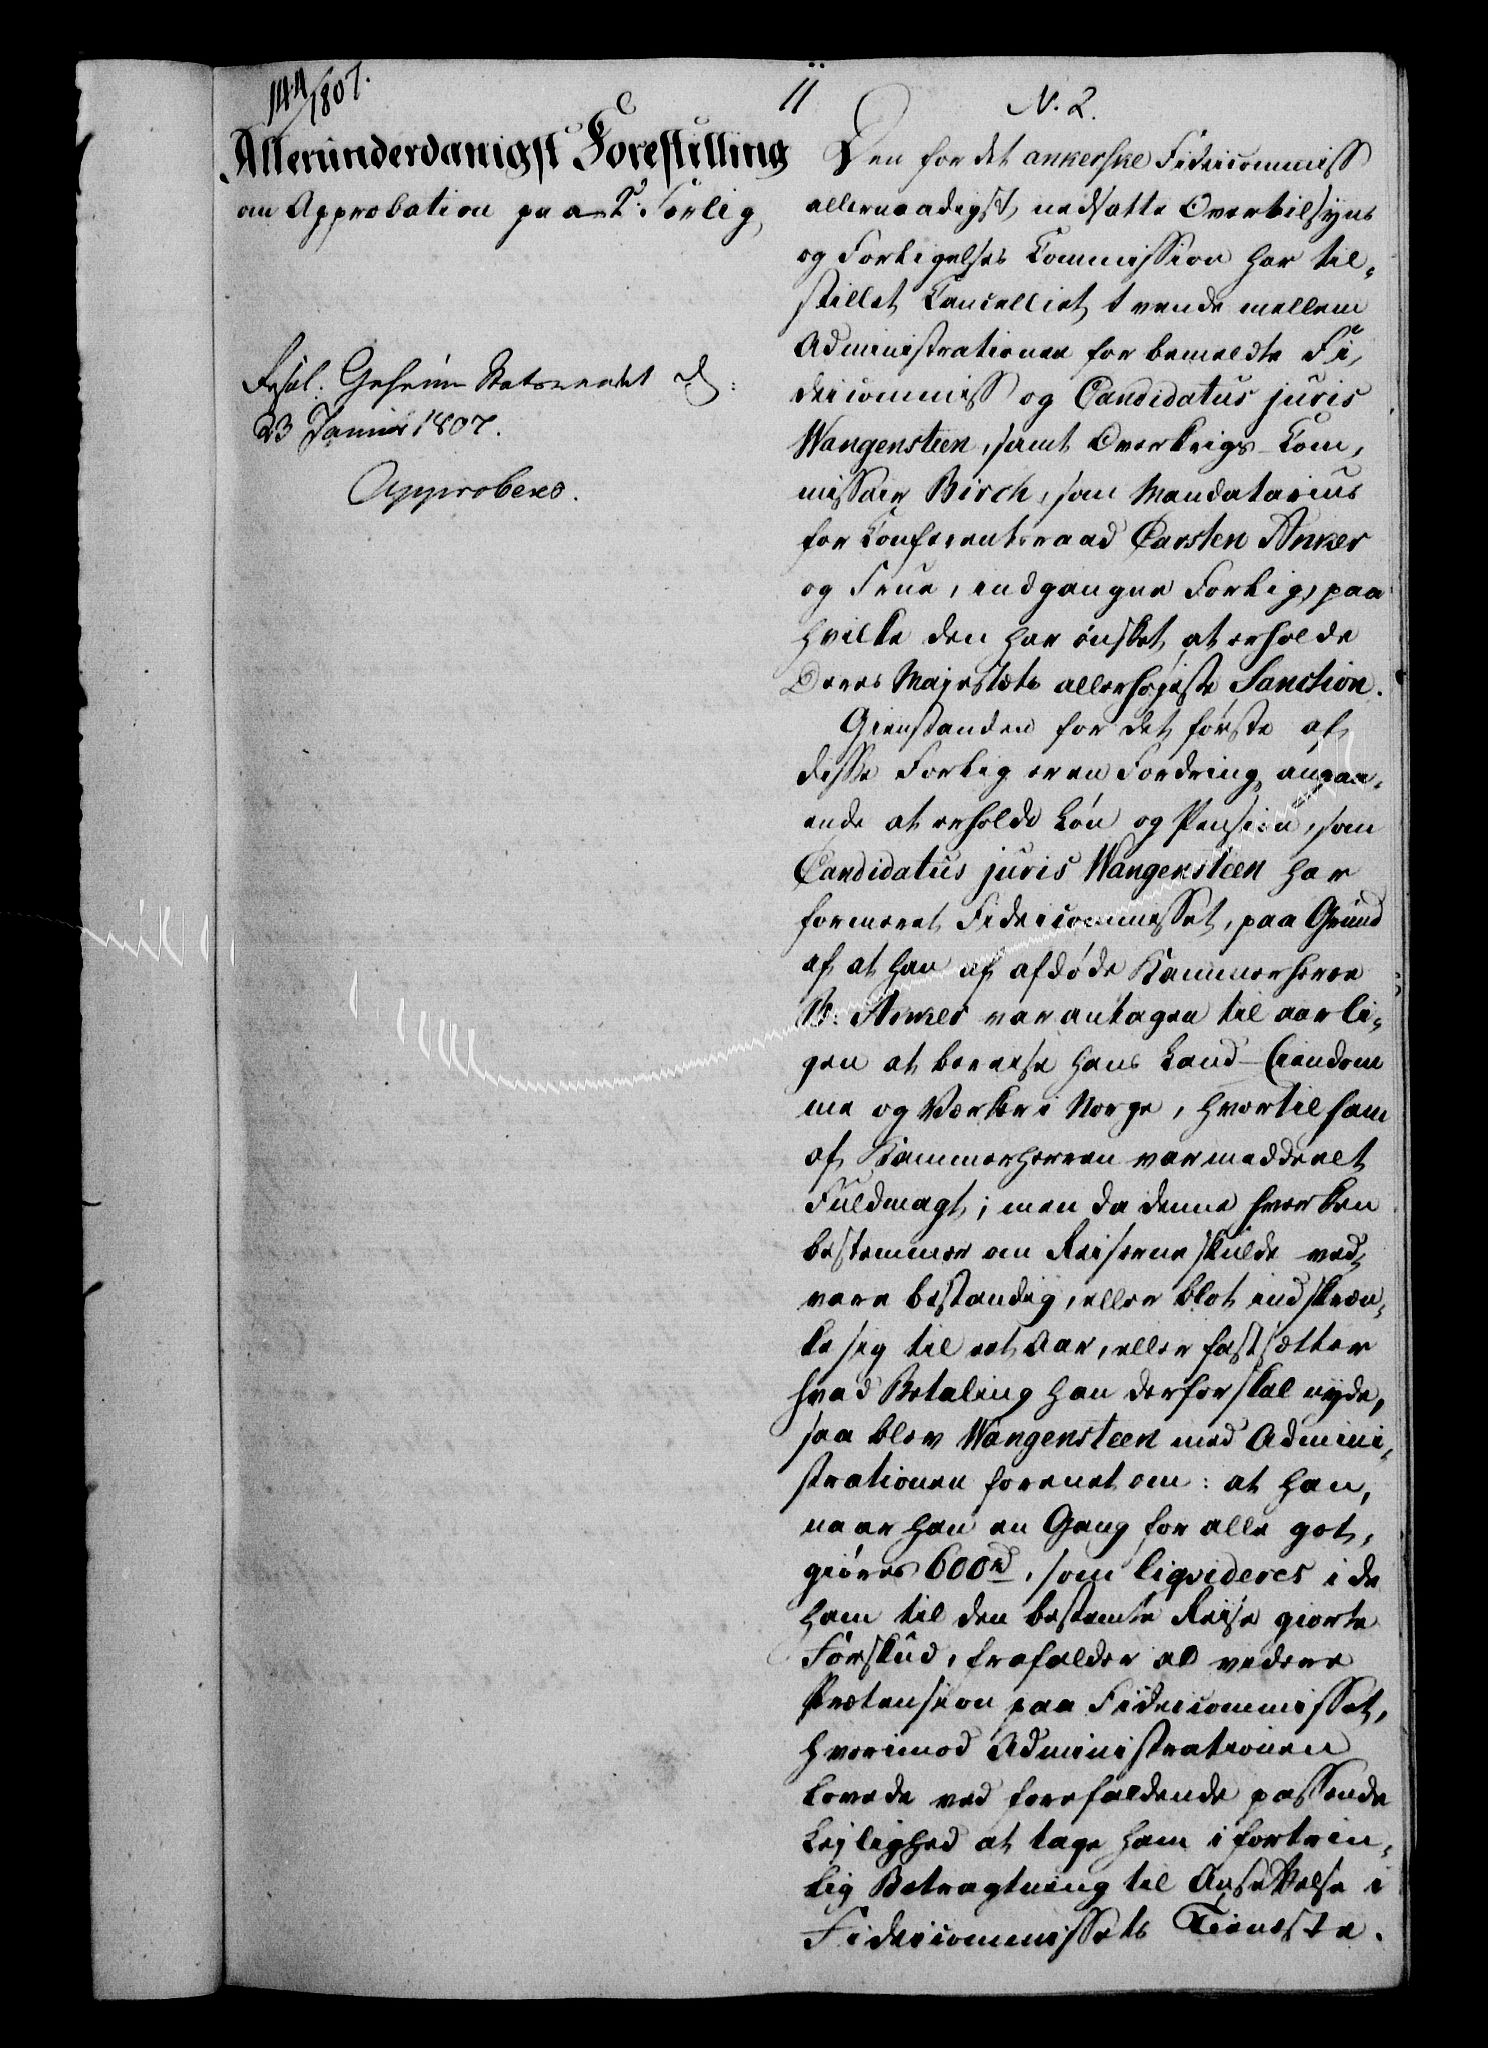 144/1807.
11
N. 2.
Allerunderdanigst Forestilling
om Approbation paa 2de Forlig
Resol. Geheime Statsraadet d:
23 Januar 1807.
Approberes.
Den for det ankerske Fideicommiss
allernaadigst nedsatte Overtilsyns
og Forligelses Commission har til-
stillet Cancelliet tvende mellem
Administrationen for bemeldte Fi-
deicommiss og Candidatus juris
Wangensteen, samt Overkrigs-Com-
missair Birch, som Mandatarius
for Conferentsraad Carsten Anker
og Frue, indgangne Forlig, paa
hvilke den har ønsket at erholde
Deres Majestæts allerhøjeste Sanction.
Gienstanden for det første af
disse Forlig er en Fordring, angaa-
ende at erholde Løn og Pension, som
Candidatus juris Wangensteen har
formeret Fideicommisset, paa Grund
af at han af afdøde Kammerherre
B: Anker var antagen til aarli-
gen at bereise hans Land-Eiendom
me og Værker i Norge, hvortil ham
af Kammerherren var meddeelt
Fuldmagt; men da denne hverken
bestemmer om Reiserne skulde ved-
vare bestandig, eller blot indskræn-
ke sig til eet Aar, eller fastsætter
hvad Betaling han derfor skal nyde,
saa blev Wangensteen med Admini-
strationen forenet om: at han,
naar han en Gang for alle got-
giøres 600rd, som liqvideres i de
ham til den bestemte Reise giorte
Forskud, frafalder al videre
Prætension paa Fideicommisset,
hvorimod Administrationen
lovede ved forefaldende passende
Lejlighed at tage ham i fortrin-
lig Betragtning til Ansættelse i
Fideicommissets Tieneste.